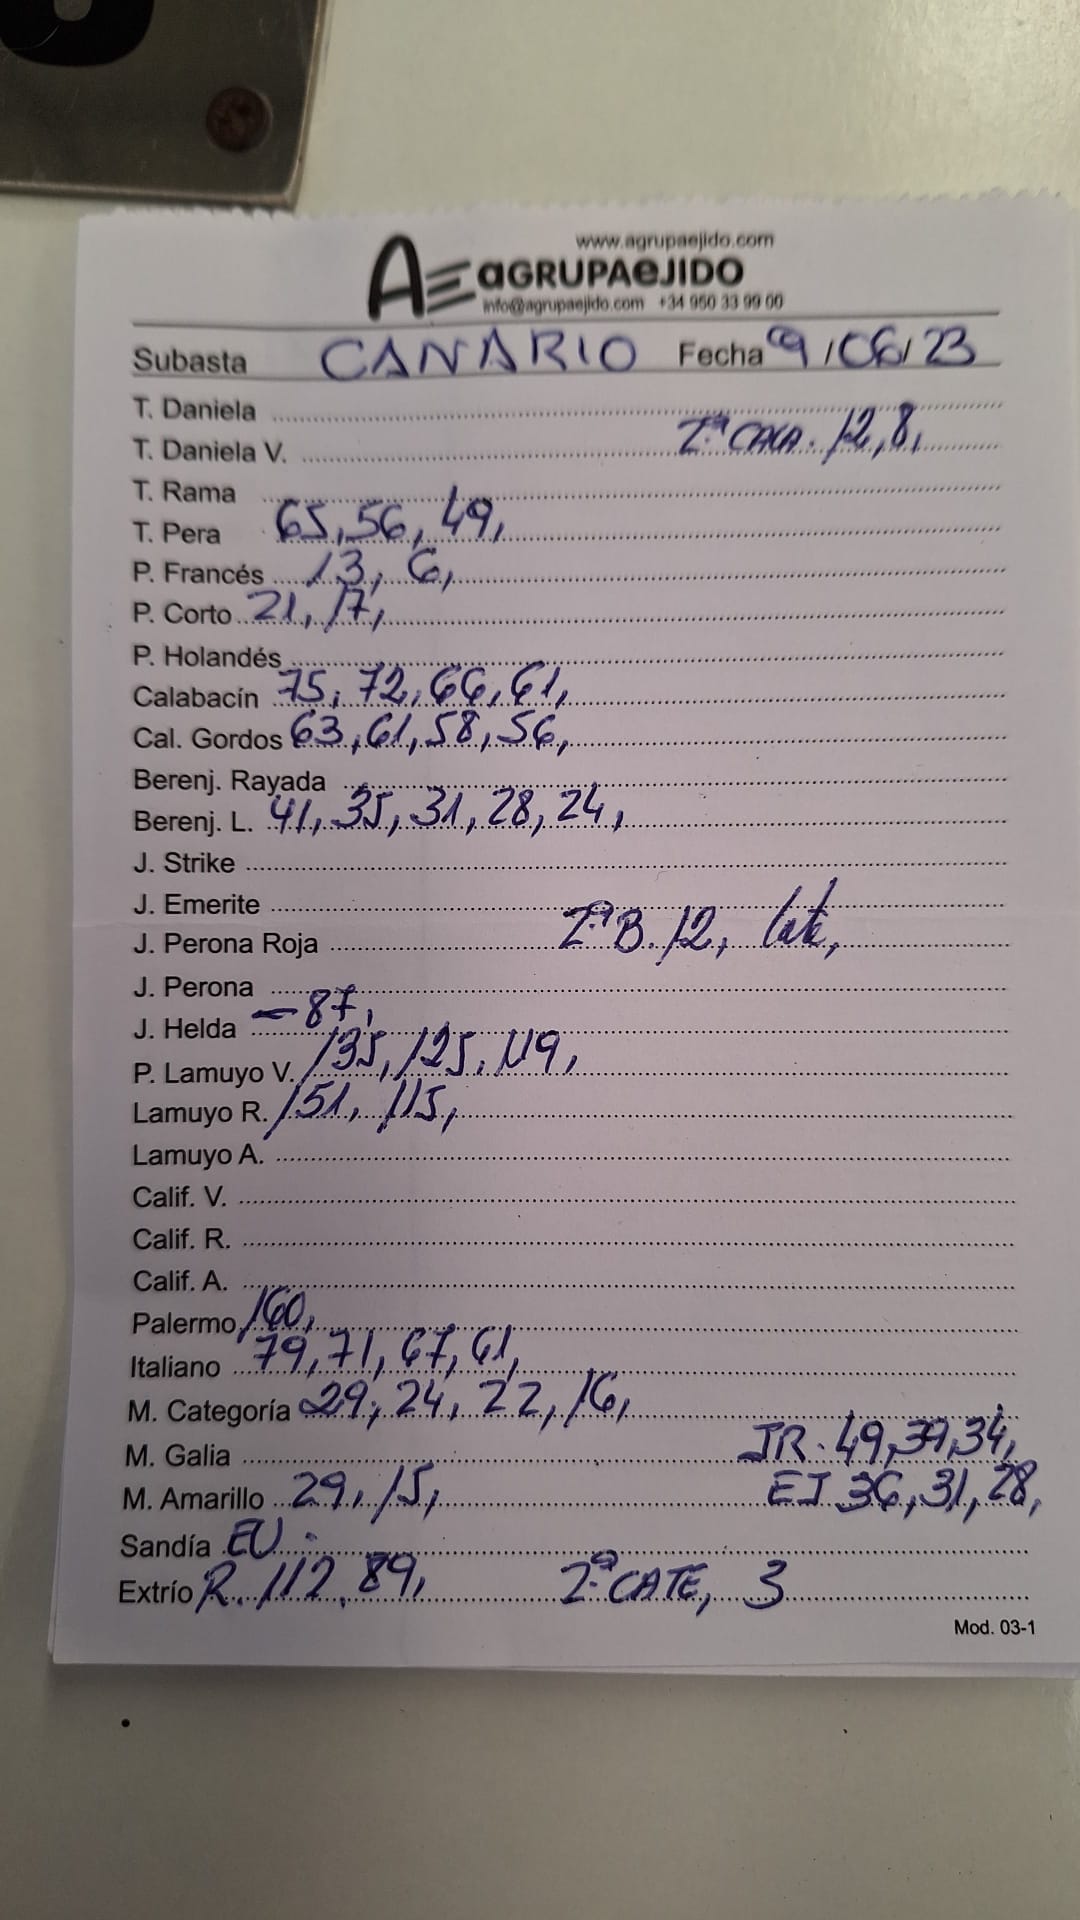 www.agrupaejido.com
AE aGRUPAeJIDO
info@agrupaejido.com +34 950 33 99 00
Subasta CANARIO Fecha 09/06/23
T. Daniela
T. Daniela V. 2ª CAÑA. 12, 8,
T. Rama
T. Pera 65, 56, 49,
P. Francés 13, 6,
P. Corto 21, 17,
P. Holandés
Calabacín 75, 72, 66, 61,
Cal. Gordos 63, 61, 58, 56,
Berenj. Rayada
Berenj. L. 41, 35, 31, 28, 24,
J. Strike
J. Emerite
J. Perona Roja 2ª B. 12,
J. Perona
J. Helda - 87,
P. Lamuyo V. 135, 125, 119,
Lamuyo R. 151, 115,
Lamuyo A.
Calif. V.
Calif. R.
Calif. A.
Palermo 160,
Italiano 79, 71, 67, 61,
M. Categoría 29, 24, 22, 16,
M. Galia JR. 49, 39, 34,
M. Amarillo 29, 15, EJ 36, 31, 28,
Sandía EU.
Extrío R. 112. 89, 2ª CATE, 3
Mod. 03-1